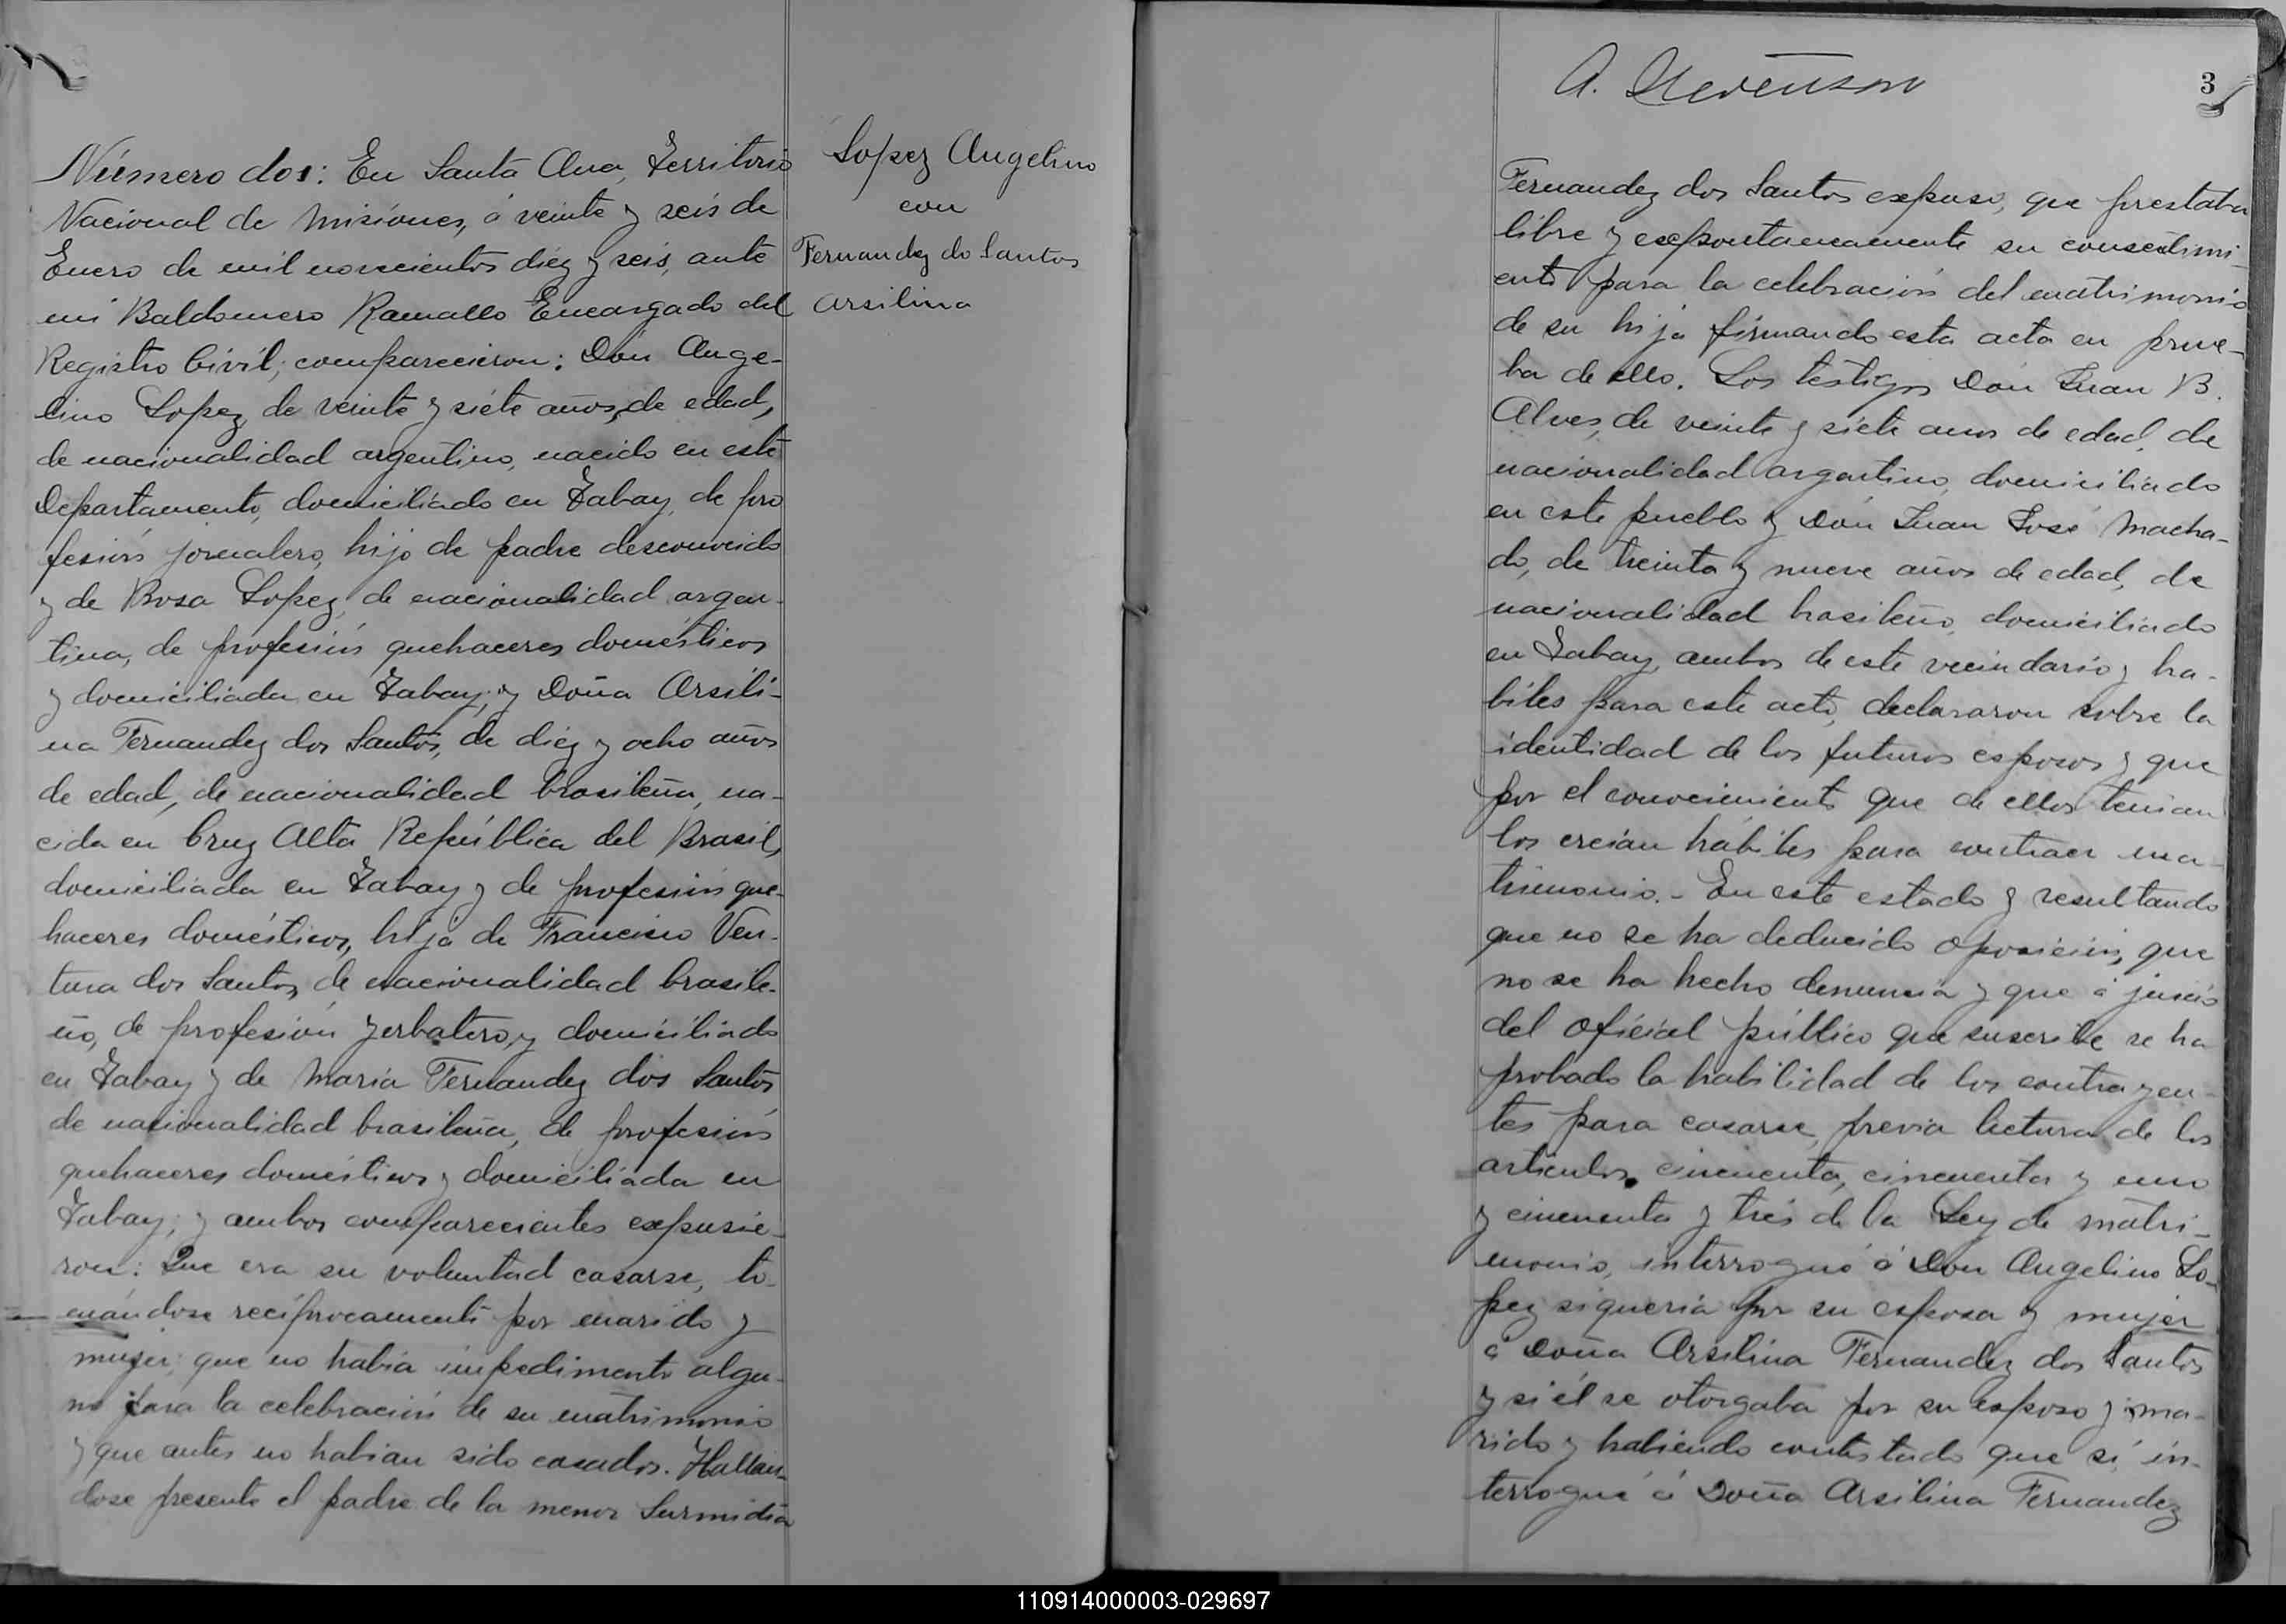 Número dos: En Santa Ana, Territorio
Nacional de Misiones, á veinte y seis de
Enero de mil novecientos diéz y seis, ante
mi Baldomero Ramallo Encargado del
Registro Civíl; comparecieron: Don Ange-
lino Lopez de veinte y siéte años, de edad,
de nacionalidad argentino, nacido en este
Departamento, domiciliado en Tabay, de pro
fesión jornalero, hijo de padre desconocido
y de Rosa Lopez, de nacionalidad argen-
tina, de profesión quehaceres domésticos
y domiciliada en Tabay; y Doña Arsili-
na Fernandez dos Santos, de diéz y ocho años
de edad, de nacionalidad brasileña, na-
cida en Cruz Alta República del Brasil,
domiciliada en Tabay y de profesión que-
haceres domésticos, hija de Francisco Ven-
tura dos Santos, de nacionalidad brasile-
ño, de profesión yerbatero, y domiciliado
en Tabay y de Maria Fernandez dos Santos
de nacionalidad brasileña, de profesión
quehaceres domésticos y domiciliada en
Tabay; y ambos comparecientes expusie-
ron: Que era su voluntad casarse, to-
mándose recíprocamente por marido y
mujer; que no habia impedimento algu-
no para la celebración de su matrimonio
y que antes no habian sido casados. Hallán-
dose presente el padre de la menor
Lopez Angelino
con
Fernandez do Santos
Arsilina
A. Stevenson
3
Fernandez dos Santos expuso, que prestaba
libre y expontaneamente su consentimi-
ento para la celebración del matrimonio
de su hija firmando esta acta en prue-
ba de ello. Los testigos Don Juan B.
Alves, de veinte y siete anos de edad, de
nacionalidad argentino, domiciliado
en este pueblo y Don Juan José Macha-
do, de treinta y nueve años de edad, de
nacionalidad brasileño, domiciliado
en Tabay, ambos de este vecindario y ha-
biles para este acto, declararon sobre la
identidad de los futuros esposos y que
por el conocimiento que de ellos tenian
los creian hábiles para contraer ma-
trimonio.- En este estado y resultando
que no se ha deducido oposición, que
no se ha hecho denuncia y que á juicio
del oficial público que suscribe se ha
probado la habilidad de los contrayen-
tes para casarse, previa lectura de los
articulos cincuenta, cincuenta y uno
y cincuenta y trés de la Ley de matri-
monio, interrogué á Don Angelino Lo-
pez si queria por su esposa y mujer
á Doña Arsilina Fernandez dos Santos
y si él se otorgaba por su esposo y ma-
rido y habiendo contestado que si, in-
terrogué á Doña Arsilina Fernandez
110914000003-029697